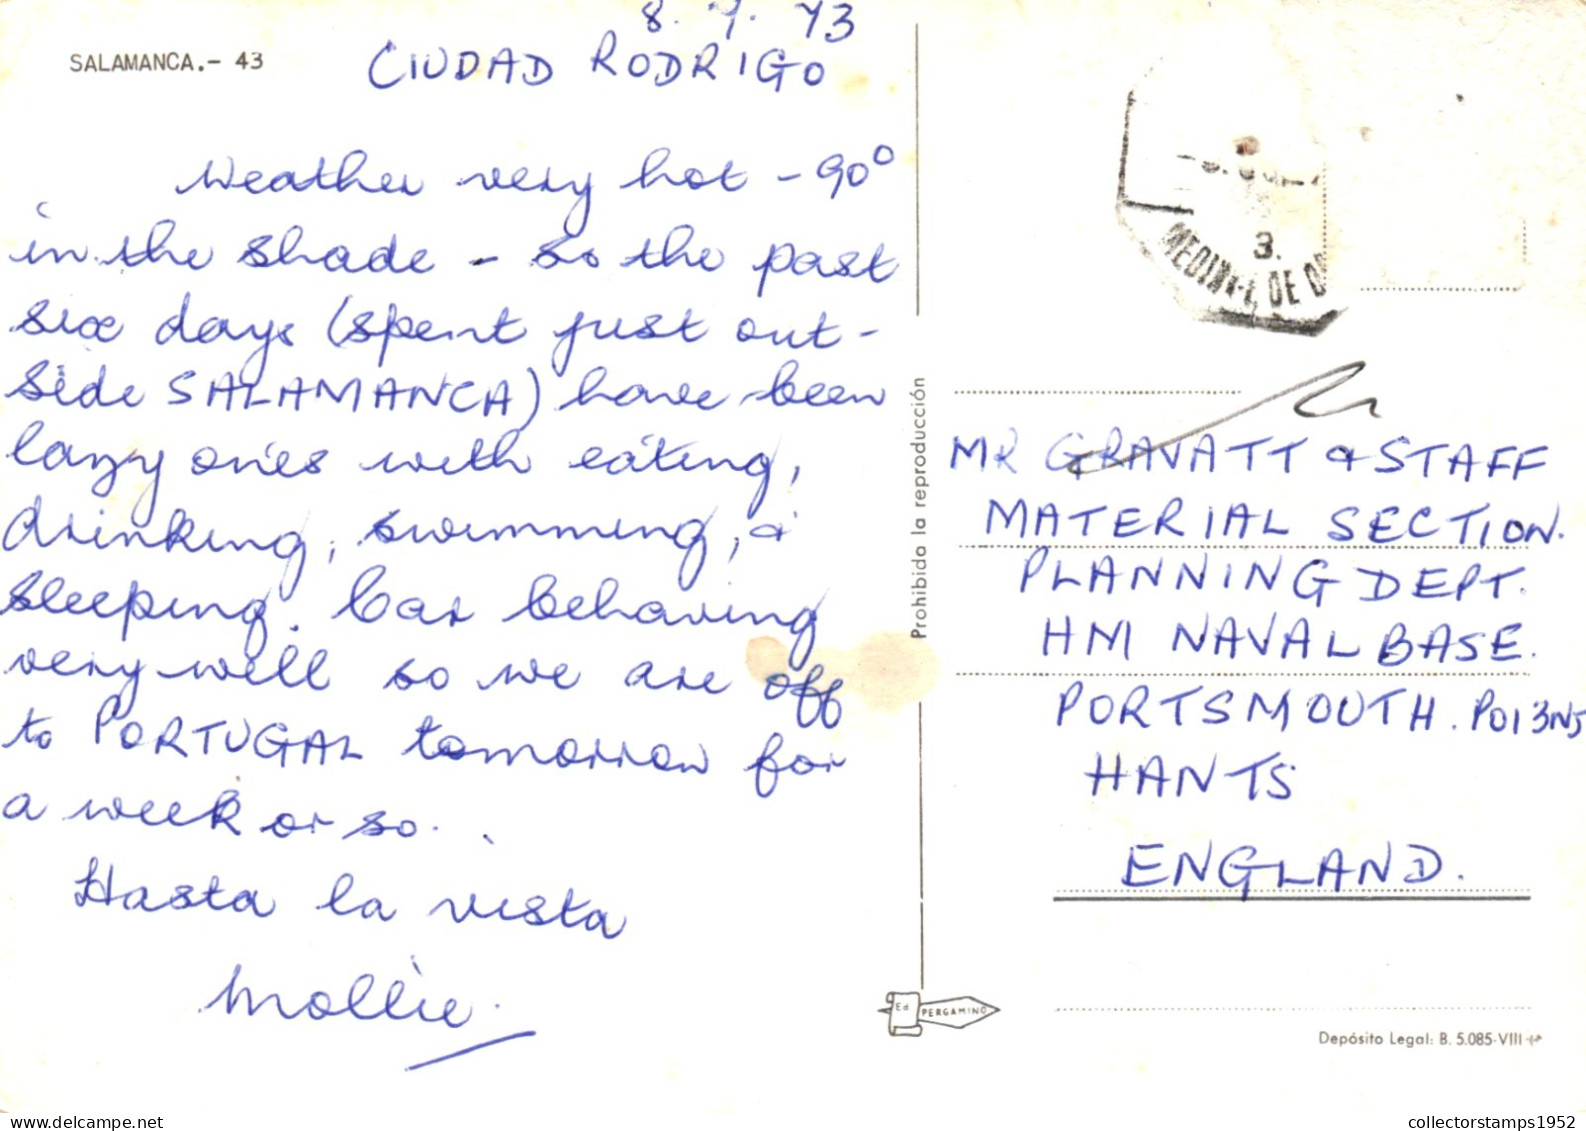 8. 7. 73
SALAMANCA.- 43
CIUDAD RODRIGO
Weather very hot - 90°
in the shade - so the past
six days (spent just out-
side SALAMANCA) have been
lazy ones with eating,
drinking, swimming, &
sleeping. Car behaving
very well so we are off
to PORTUGAL tomorrow for
a week or so.
Hasta la vista
Mollie.
Prohibida la reproducción
3.
DE
MR GRAVATT & STAFF
MATERIAL SECTION.
PLANNING DEPT.
HM NAVAL BASE.
PORTSMOUTH. PO1 3NJ
HANTS
ENGLAND.
Ed PERGAMINO
Depósito Legal: B. 5.085-VIII
collectorstamps1952